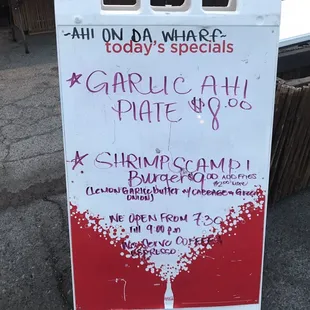 -AHI ON DA WHARF-
today's specials
GARLIC AHI
PLATE $8.00
SHRIMP SCAMPI
Burger $9.00 ADD FRIES
(LEMON GARLIC Butter w/ CABBAGE & GREEN
ONION)
WE OPEN FROM 7:30
till 9:00 p.m
ESPRESSO